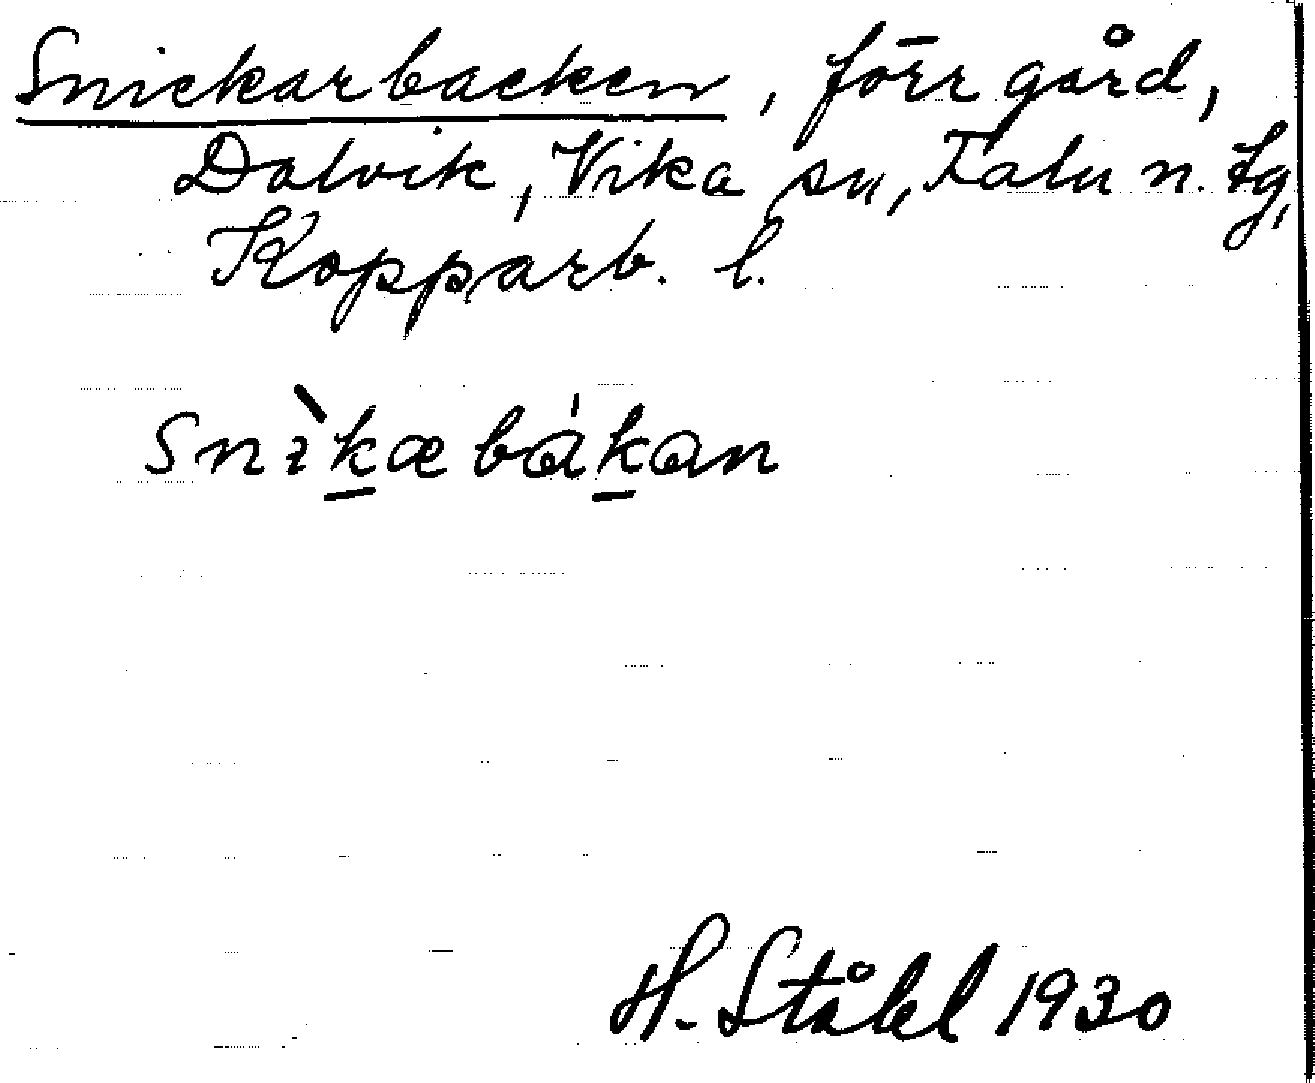 Snickarbacken, förr gård,
Dalvik, Vika sn, Falu n. tg,
Kopparb. l.
Snìkæbákan
H. Ståhl 1930